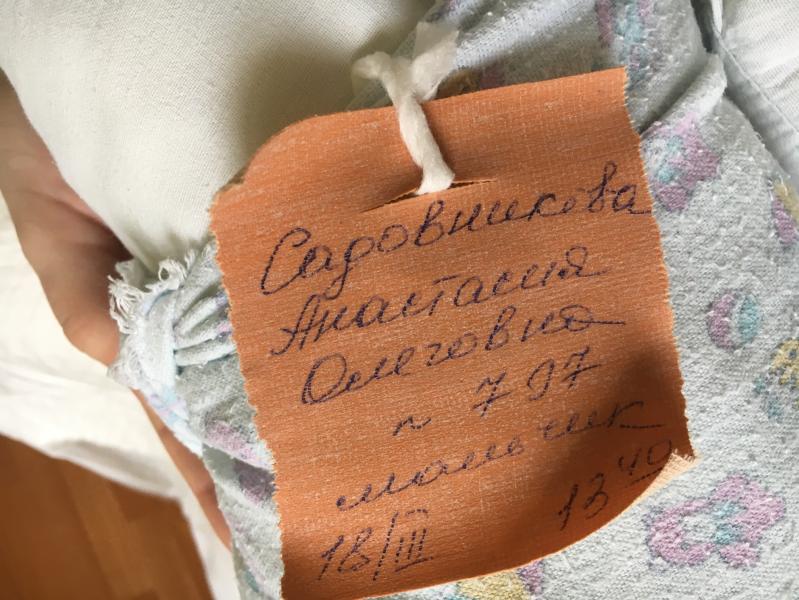 Садовникова
Анастасия
Олеговна
~ 797
мальчик
18/III 13 40